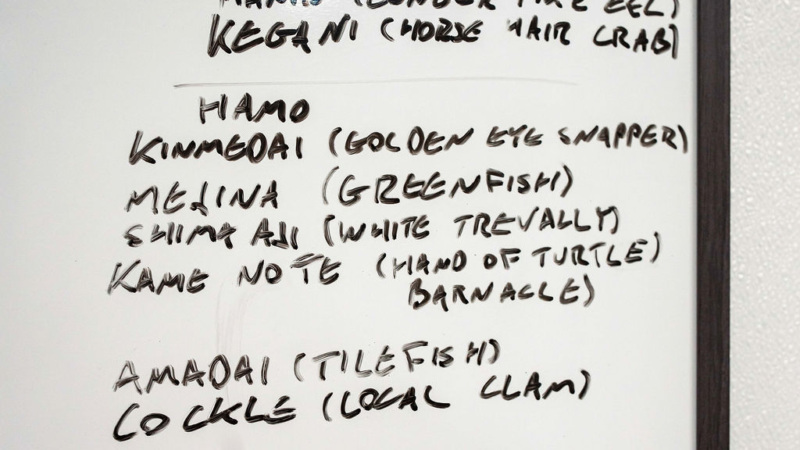 EEL)
KEGANI (HORSE HAIR CRAB)
HAMO
KINMEDAI (GOLDEN EYE SNAPPER)
MEJINA (GREENFISH)
SHIMA AJI (WHITE TREVALLY)
KAME NO TE (HAND OF TURTLE
BARNACLE)
AMADAI (TILEFISH)
COCKLE (LOCAL CLAM)